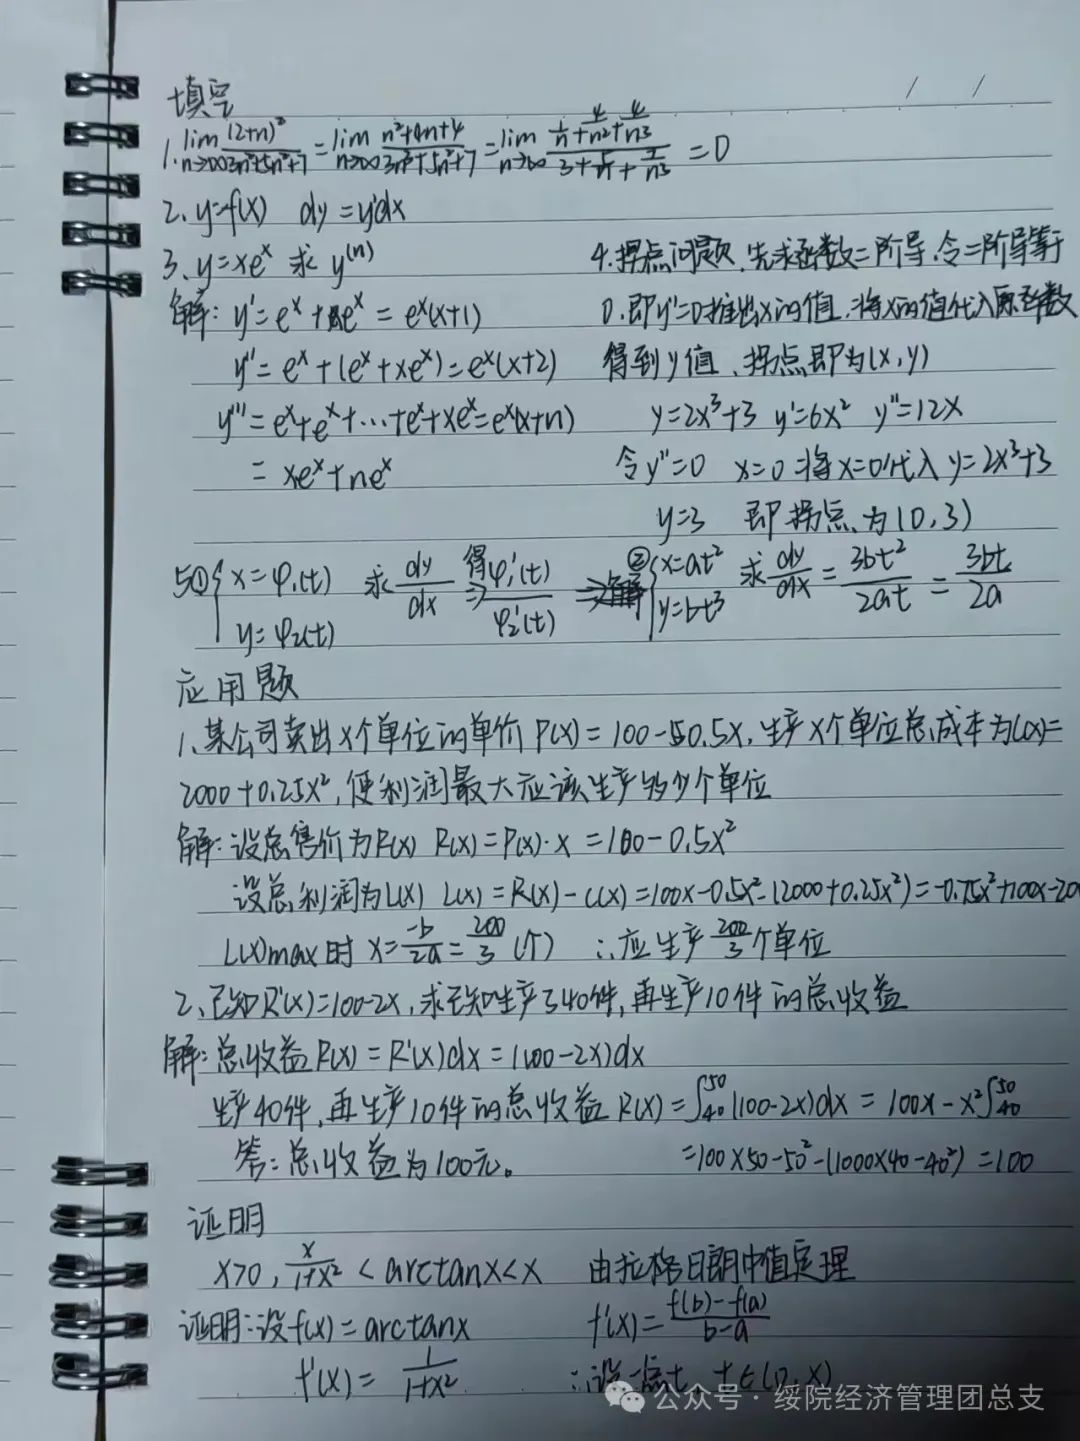 填空
1. lim n→∞ (2+n)²/3n³+5n²+7 = lim n→∞ n²+4n+4/3n³+5n²+7 = lim n→∞ 1/n+4/n²+4/n³ / 3+5/n+7/n³ = 0
2、y=f(x) dy=y'dx
3、y=xeˣ 求 y⁽ⁿ⁾
解: y'=eˣ+xeˣ=eˣ(x+1)
y''=eˣ+(eˣ+xeˣ)=eˣ(x+2)
y'''=eˣ+eˣ+…+eˣ+xeˣ=eˣ(x+n)
=xeˣ+neˣ
4.拐点问题,先求函数二阶导,令二阶导等于
0.即y''=0推出x的值,将x的值代入原函数
得到y值、拐点即为(x,y)
y=2x³+3 y'=6x² y''=12x
令y''=0 x=0 将x=0代入 y=2x³+3
y=3 即拐点为(0,3)
5① { x=φ₁(t) y=φ₂(t) 求 dy/dx 得⇒ φ₁'(t)/φ₂'(t) ⇒解 ② { x=at² y=bt³ 求 dy/dx = 3bt²/2at = 3bt/2a
应用题
1、某公司卖出x个单位的单价P(x)=100-0.5x,生产x个单位总成本为C(x)=
2000+0.25x²,使利润最大应该生产多少个单位
解:设总售价为R(x) R(x)=P(x)·x=100-0.5x²
设总利润为L(x) L(x)=R(x)-C(x)=100x-0.5x²-(2000+0.25x²)=-0.75x²+100x-200
L(x)max时 x=-b/2a=200/3(个) ∴应生产200/3个单位
2、已知R'(x)=100-2x,求已知生产了40件,再生产10件的总收益
解:总收益R(x)=R'(x)dx=(100-2x)dx
生产40件,再生产10件的总收益R(x)=∫₄₀⁵⁰(100-2x)dx=100x-x²∫₄₀⁵⁰
答:总收益为100元。 =100×50-50²-(1000×40-40²)=100
证明
x>0, x/1+x² < arctanx<x 由拉格日朗中值定理
证明:设f(x)=arctanx f'(x)=f(b)-f(a)/b-a
f'(x)=1/1+x² ∴设一点t, t∈(0,x)
公众号·绥院经济管理团总支